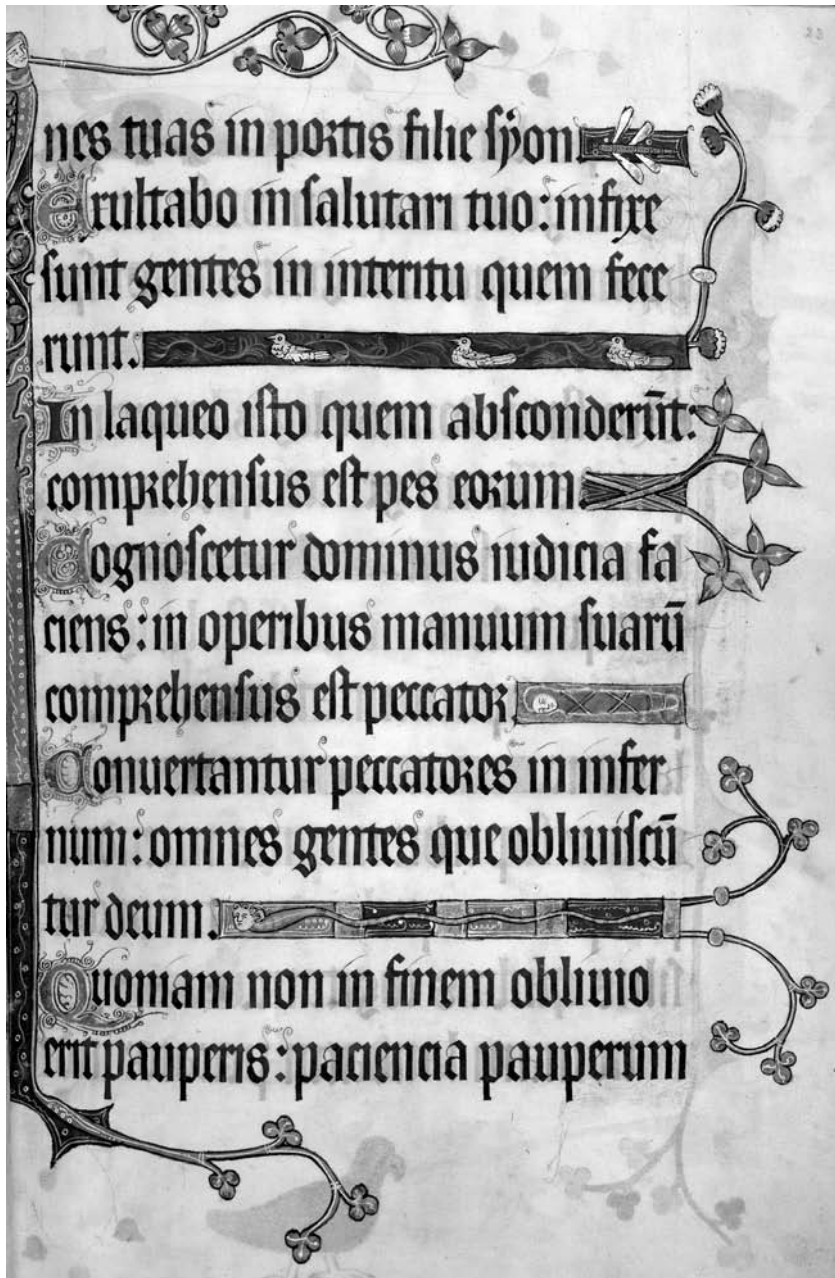 23
nes tuas in portis filie syon
Exultabo in salutari tuo: infixe
sunt gentes in interitu quem fece
runt.
In laqueo isto quem absconderūt:
comprehensus est pes eorum.
Cognoscetur dominus iudicia fa
ciens: in operibus manuum suarū
comprehensus est peccator.
Conuertantur peccatores in infer
num: omnes gentes que obliuiscū
tur deum.
Quoniam non in finem obliuio
erit pauperis: paciencia pauperum